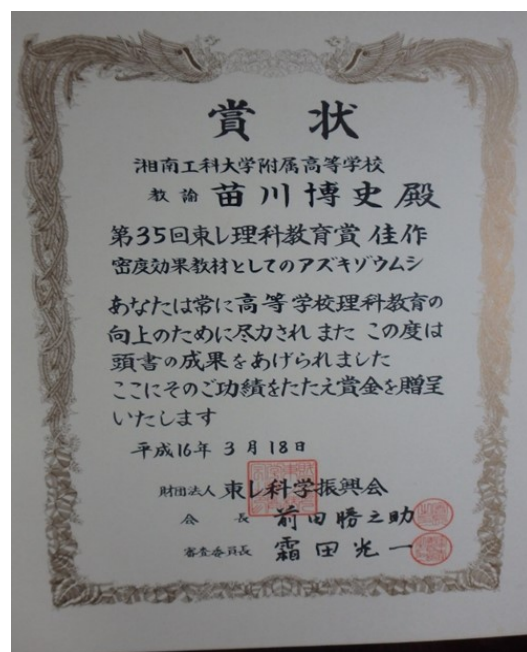 賞状
湘南工科大学附属高等学校
教諭 苗川博史殿
第35回東レ理科教育賞 佳作
密度効果教材としてのアズキゾウムシ
あなたは常に高等学校理科教育の
向上のために尽力され また この度は
頭書の成果をあげられました
ここにそのご功績をたたえ賞金を贈呈
いたします
平成16年 3月18日
財団法人 東レ科学振興会
会長 前田勝之助
審査委員長 霜田光一